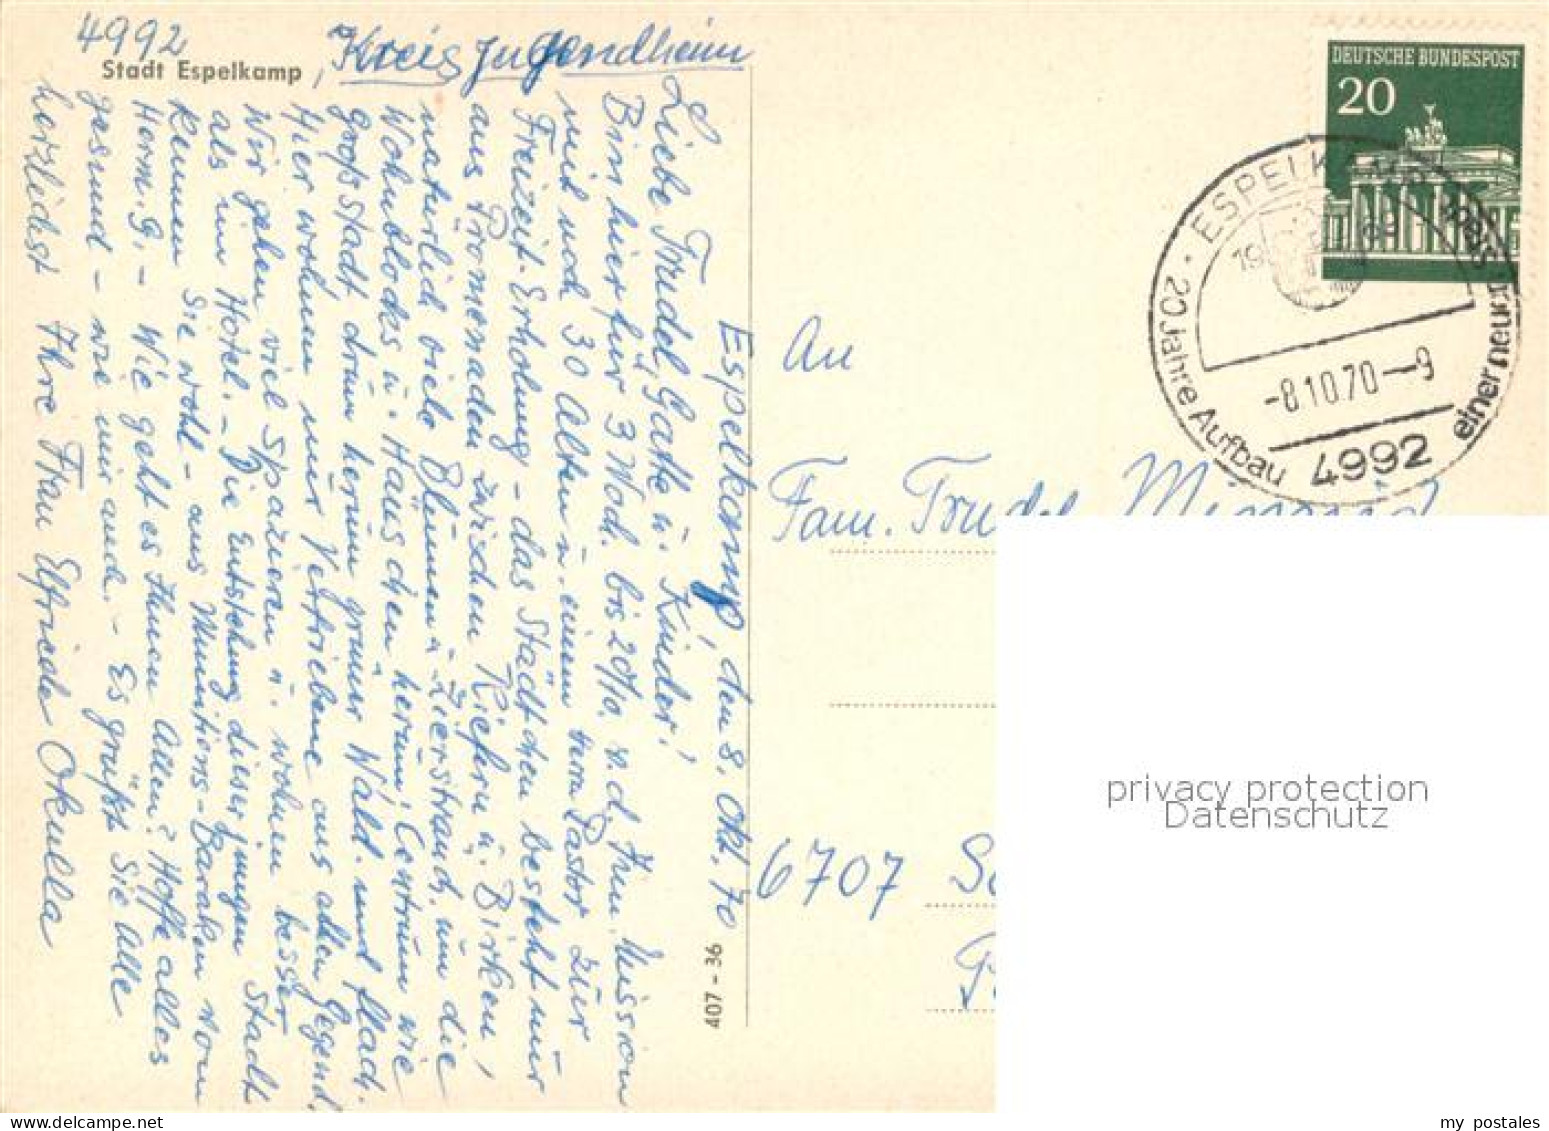 4992
Stadt Espelkamp, Kreis Jugendheim
Espelkamp, den 8. Okt. 70
Liebe Trudel, Gatte u. Kinder!
Bin hier für 3 Woch. bis 20/10. v. d. Inn. Mission
mit noch 30 Alten u. einem Herrn Pastor zur
Freizeit-Erholung - das Städtchen besteht nur
aus Promenaden zwischen Kiefern u. Birken,
natürlich viele Blumen u. Zierstrauch, um die
Wohnblocks u. Häuschen herum, Centrum wie
Großstadt, drum herum grüner Wald und flach.
Hier wohnen nur Vertriebene aus allen Gegend.
Wir gehen viel spazieren u. wohnen besser
als im Hotel. - Die Entstehung dieser jungen Stadt
kennen Sie wohl - aus Munitions-Baraken vom
Herm. G. - Wie geht es Ihnen Allen? Hoffe alles
gesund - wie mir auch. - Es grüßt Sie Alle
herzlichst Ihre Frau Elfriede Okulla
407 - 36
DEUTSCHE BUNDESPOST
20
ESPELKAMP
20 Jahre Aufbau einer neuen
-8.10.70--9
4992
An
Fam. Trudel
6707
privacy protection
Datenschutz
my postales